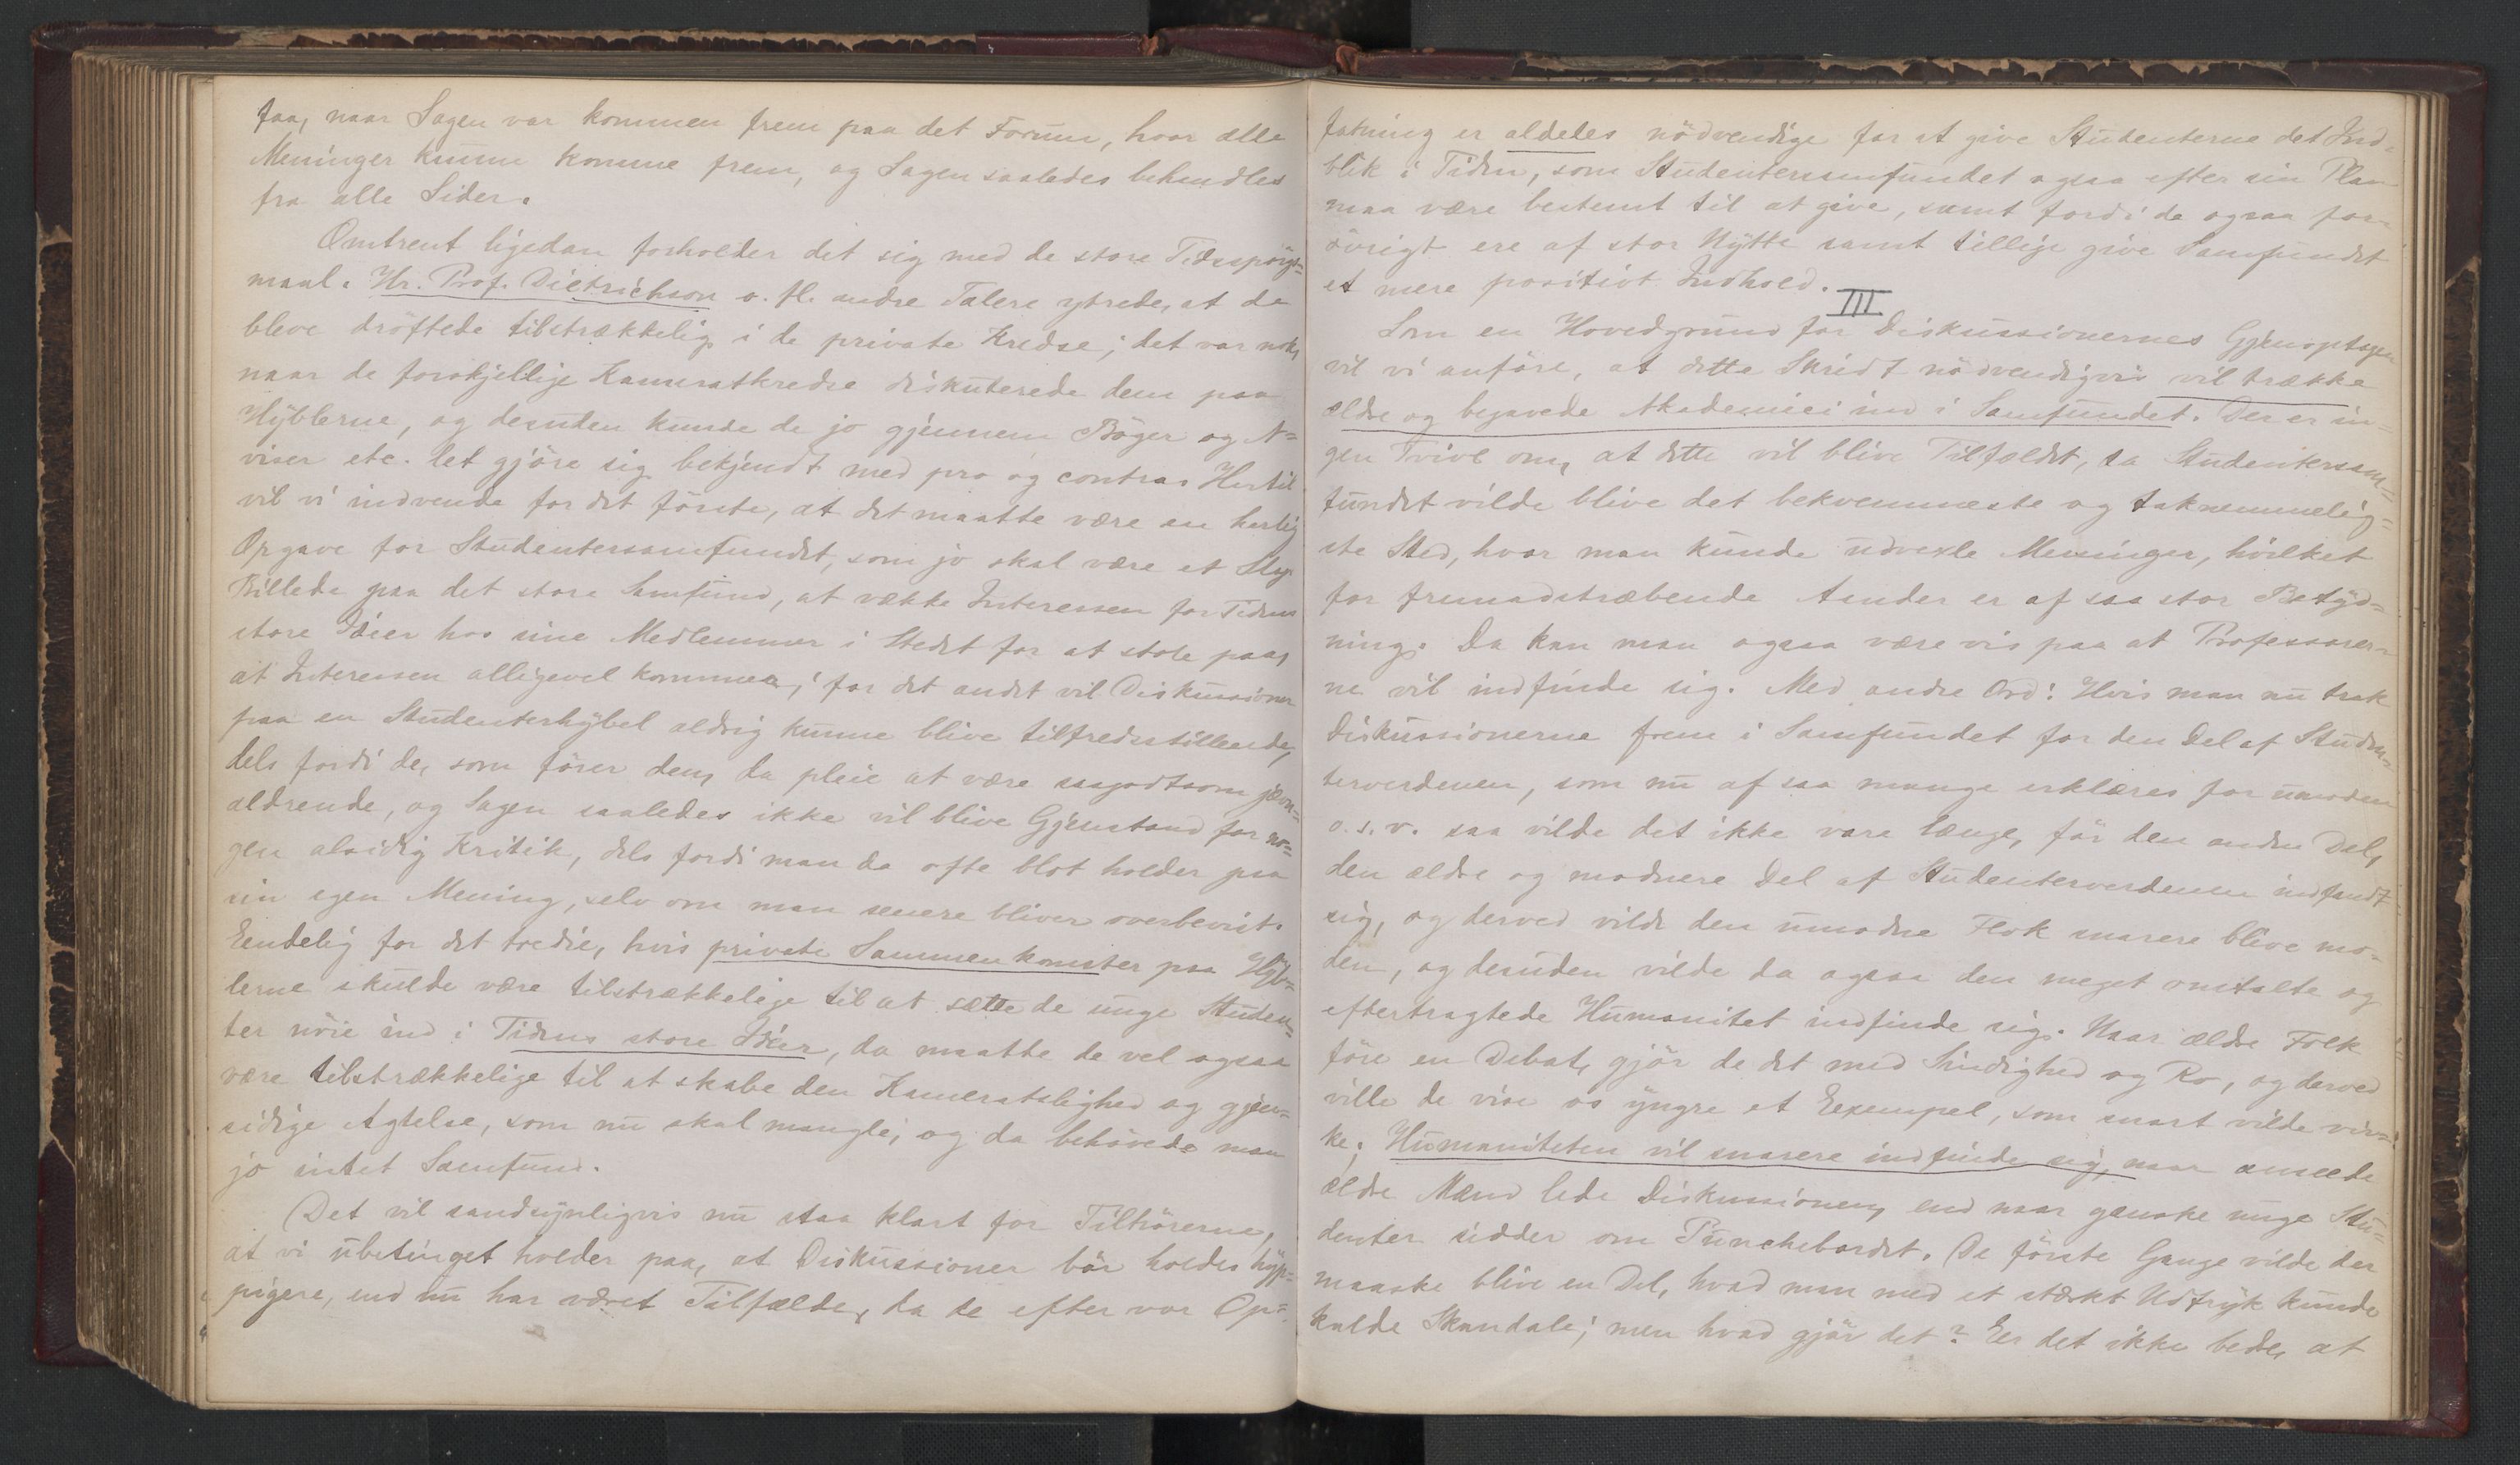 faa, naar Sagen var kommen frem paa det Forum, hvor alle
Meninger kunne komme frem, og Sagen saaledes behandles
fra alle Sider.
Omtrent ligedan forholder det sig med de store Tidsspörgs=
maal. Hr. Prof. Dietrichson o. fl. andre Talere ytrede, at de
bleve dröftede tilstrækkelig i de private Kredse; det var nok,
naar de forskjellige Kameratkredse diskuterede dem paa
Hyblerne, og desuden kunde de jo gjennem Böger og A=
viser etc. let gjöre sig bekjendt med pro og contra. Hertil
vil vi indvende for det förste, at det maatte være en herlig
Opgave for Studentersamfundet, som jo skal være et Slags
Billede paa det store Samfund, at vække Interessen for Tidens
store Idéer hos sine Medlemmer i Stedet for at stole paa,
at Interessen alligevel kommer; for det andet vil Diskussioner
paa en Studenterhybel aldrig kunne blive tilfredsstillende,
dels fordi de, som förer dem, da pleie at være saagodtsom jævn=
aldrende, og Sagen saaledes ikke vil blive Gjenstand for no=
gen alsidig Kritik, dels fordi man da ofte blot holder paa
sin egen Mening, selv om man senere bliver overbevist.
Eendelig for det tredie, hvis private Sammenkomster paa Hyb=
lerne skulde være tilstrækkelige til at sætte de unge Studen=
ter nöie ind i Tidens store Idéer, da maatte de vel ogsaa
være tilstrækkelige til at skabe den Kameratslighed og gjen=
sidige Agtelse, som nu skal mangle; og da behövede man
jo intet Samfund.
Det vil sandsynligvis nu staa klart for Tilhörerne,
at vi ubetinget holder paa, at Diskussioner bör holdes hyp=
pigere, end nu har været Tilfælde, da de efter vor Op=
fatning er aldeles nödvendige for at give Studenterne det Ind=
blik i Tiden, som Studentersamfundet ogsaa efter sin Plan
maa være bestemt til at give, samt fordi de ogsaa for=
övrigt ere af stor Nytte samt tillige give Samfundet
et mere positivt Indhold.
III
Som en Hovedgrund for Diskussionernes Gjenoptagen
vil vi anföre, at dette Skridt nödvendigvis vil trække
ældre og begavede Akademici ind i Samfundet. Der er in=
gen Tvivl om, at dette vil blive Tilfældet, da Studentersam=
fundet vilde blive det bekvemmeste og taknemmelig=
ste Sted, hvor man kunde udvexle Meninger, hvilket
for fremadstræbende Aander er af saa stor Betyd=
ning. Da kan man ogsaa være vis paa at Professorer=
ne vil indfinde sig. Med andre Ord: Hvis man nu trak
Diskussionerne frem i Samfundet for den Del af Studen=
terverdenen, som nu af saa mange erklæres for umoden
o.s.v. saa vilde det ikke vare længe, för den anden Del,
den ældre og modnere Del af Studenterverdenen indfandt
sig, og derved vilde den umodne Flok snarere blive mo=
den, og desuden vilde da ogsaa den meget omtalte og
eftertragtede Humanitet indfinde sig. Naar ældre Folk
före en Debat, gjör de det med Sindighed og Ro, og derved
ville de vise os yngre et Eexempel, som snart vilde vir=
ke; Humaniteten vil snarere indfinde sig, naar ansede
ældre Mænd lede Diskussionen, end naar ganske unge Stu=
denter sidder om Punchebordet. De förste Gange vilde der
maaske blive en Del, hvad man med et stærkt Udtryk kunde
kalde Skandale; men hvad gjör det? Eer det ikke bedre, at